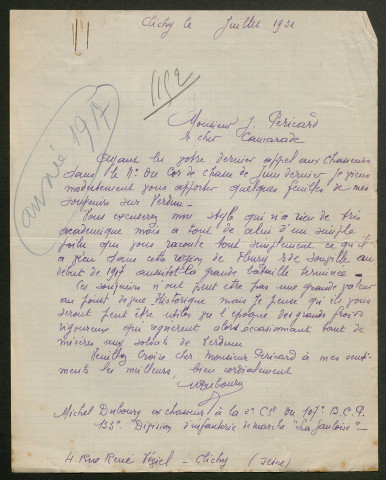 Clichy le Juillet 1932
année 1917
1192
Monsieur J. Péricard
& cher Camarade
Ayant lu votre dernier appel aux chasseurs
dans le N° du Cor de chasse de Juin dernier je viens
modestement vous apporter quelques feuilles de mes
souvenirs sur Verdun -
Vous excuserez mon style qui n'a rien de très
academique mais a tout de celui d'un simple
poilu qui vous raconte tout simplement ce qu'il
a vécu dans cette région de Fleury & de au
début de 1917 aussitôt la grande bataille terminée -
Ces souvenirs n'ont peut être pas une grande valeur
au point de vue Historique mais je pense qu'ils vous
seront peut être utiles sur l'époque des grands froids
rigoureux qui regnèrent alors occasionnant tant de
misères aux soldats de Verdun
Veuillez croire cher Monsieur Péricard à mes senti-
ments les meilleurs bien cordialement
MDubourg
Michel Dubourg ex chasseur à la 2e Cie du 107e B.C.P.
133e Division d'infanterie de marche "La Gauloise" -
4 Rue René - Clichy (Seine)